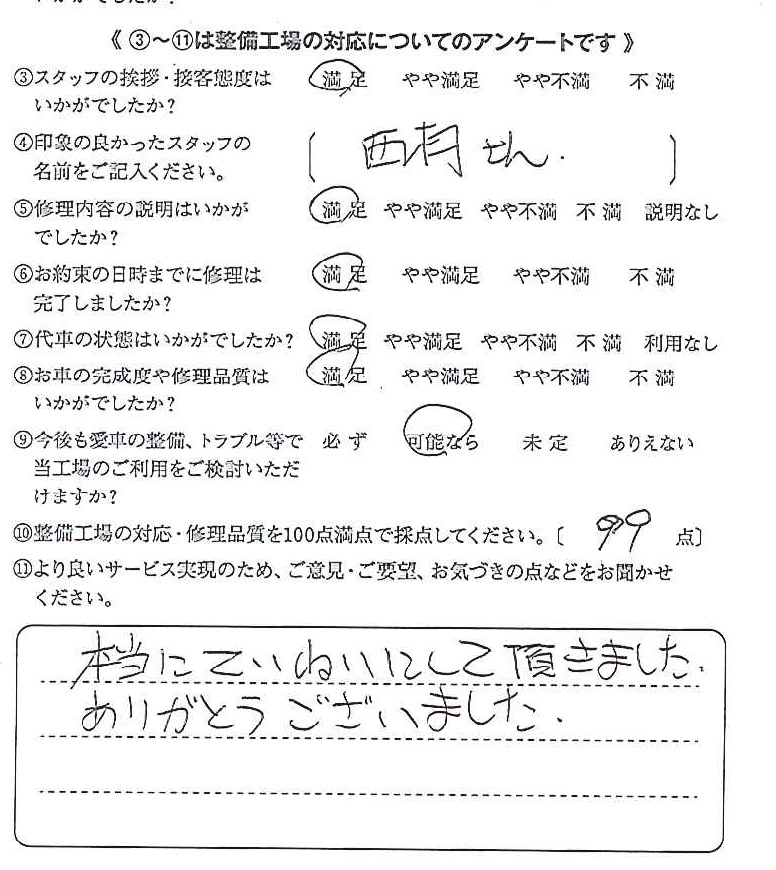 《 ③～⑪は整備工場の対応についてのアンケートです 》
③スタッフの挨拶・接客態度は 満 足 やや満足 やや不満 不 満
いかがでしたか？
④印象の良かったスタッフの 〔 さん. 〕
名前をご記入ください。
⑤修理内容の説明はいかが 満 足 やや満足 やや不満 不 満 説明なし
でしたか？
⑥お約束の日時までに修理は 満 足 やや満足 やや不満 不 満
完了しましたか？
⑦代車の状態はいかがでしたか？ 満 足 やや満足 やや不満 不 満 利用なし
⑧お車の完成度や修理品質は 満 足 やや満足 やや不満 不 満
いかがでしたか？
⑨今後も愛車の整備、トラブル等で 必 ず 可能なら 未 定 ありえない
当工場のご利用をご検討いただ
けますか？
⑩整備工場の対応・修理品質を100点満点で採点してください。〔 99 点〕
⑪より良いサービス実現のため、ご意見・ご要望、お気づきの点などをお聞かせ
ください。
本当にていねいにして頂きました.
ありがとうございました.